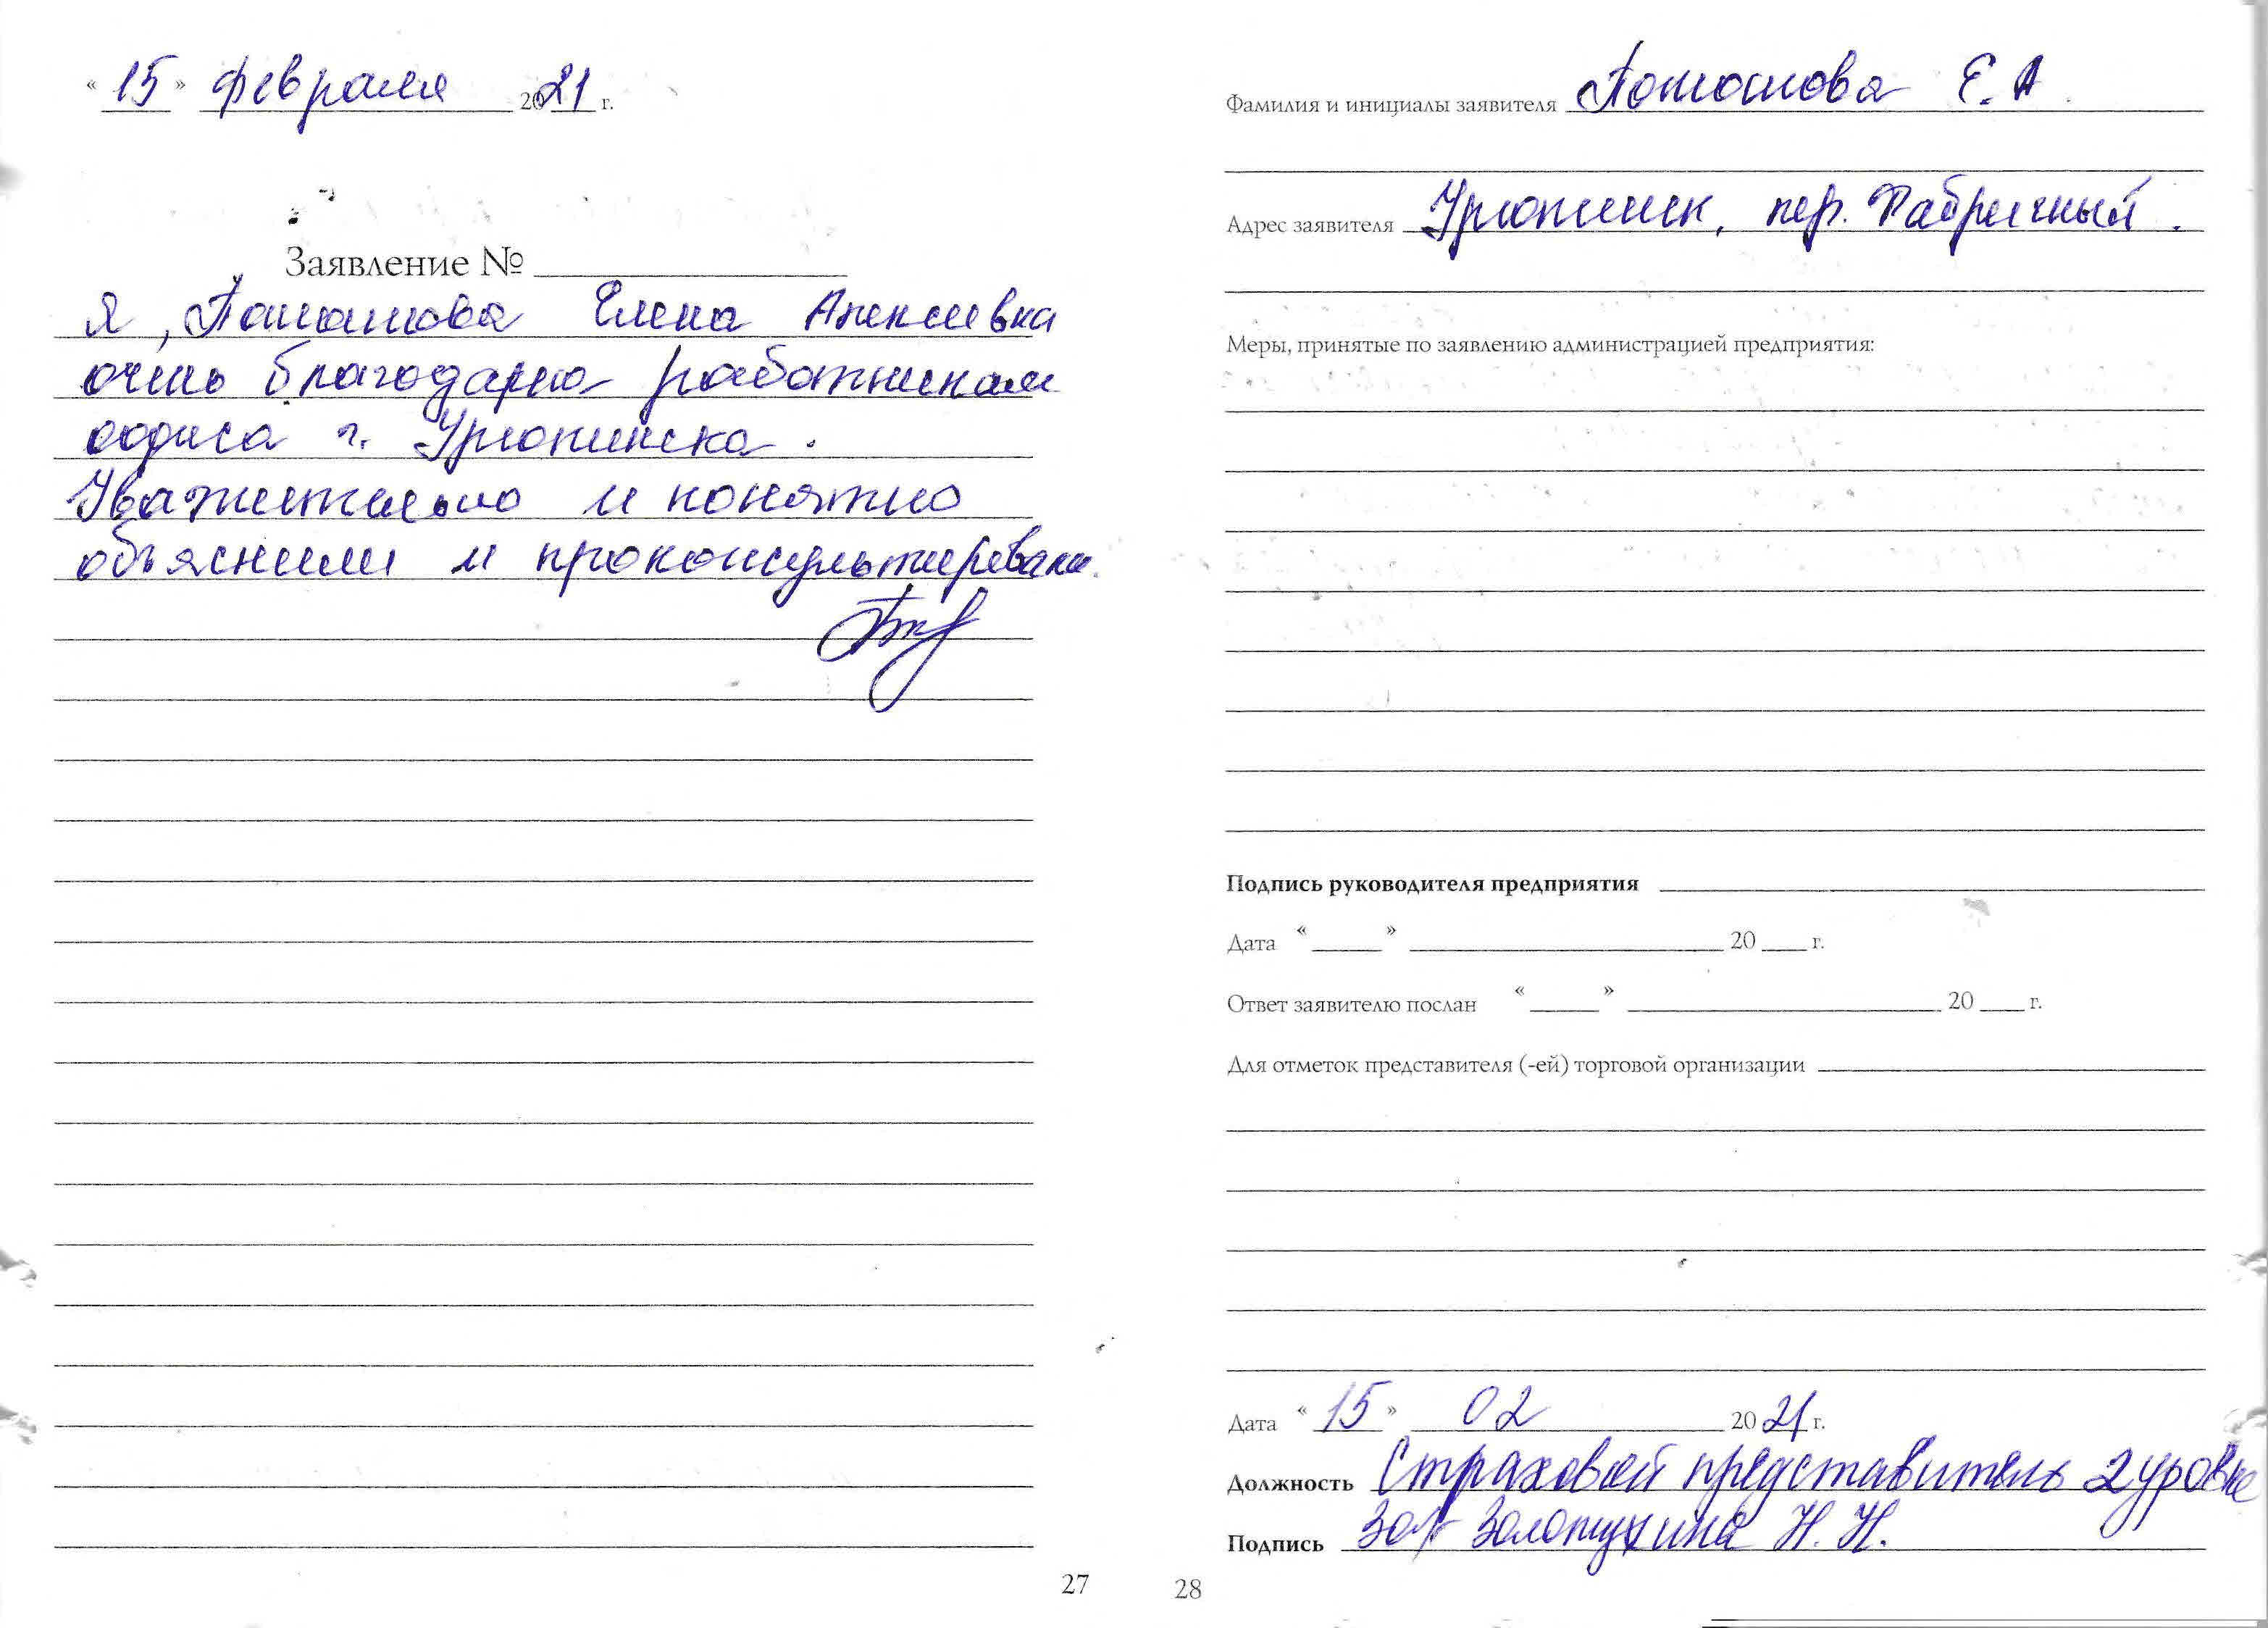 « 15 » февраля 2021 г.
Заявление №
Я, Потапова Елена Алексеевна
очень благодарю работникам
офиса г. Урюпинска.
Уважительно и понятно
объяснили и проконсультировали.
27
Фамилия и инициалы заявителя Потапова Е. А.
Адрес заявителя Урюпинск, пер. Фабричный.
Меры, принятые по заявлению администрацией предприятия:
Подпись руководителя предприятия
Дата « » 20 г.
Ответ заявителю послан « » 20 г.
Для отметок представителя (-ей) торговой организации
Дата « 15 » 02 2021 г.
Должность Страховой представитель 2 уровня
Подпись Зол Золотухина Н. Н.
28